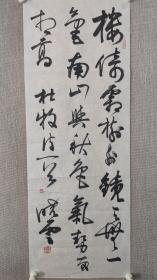 樓倚霜樹外鏡天無一
毫南山與秋色氣勢兩
相高 杜牧诗一首 晓雲